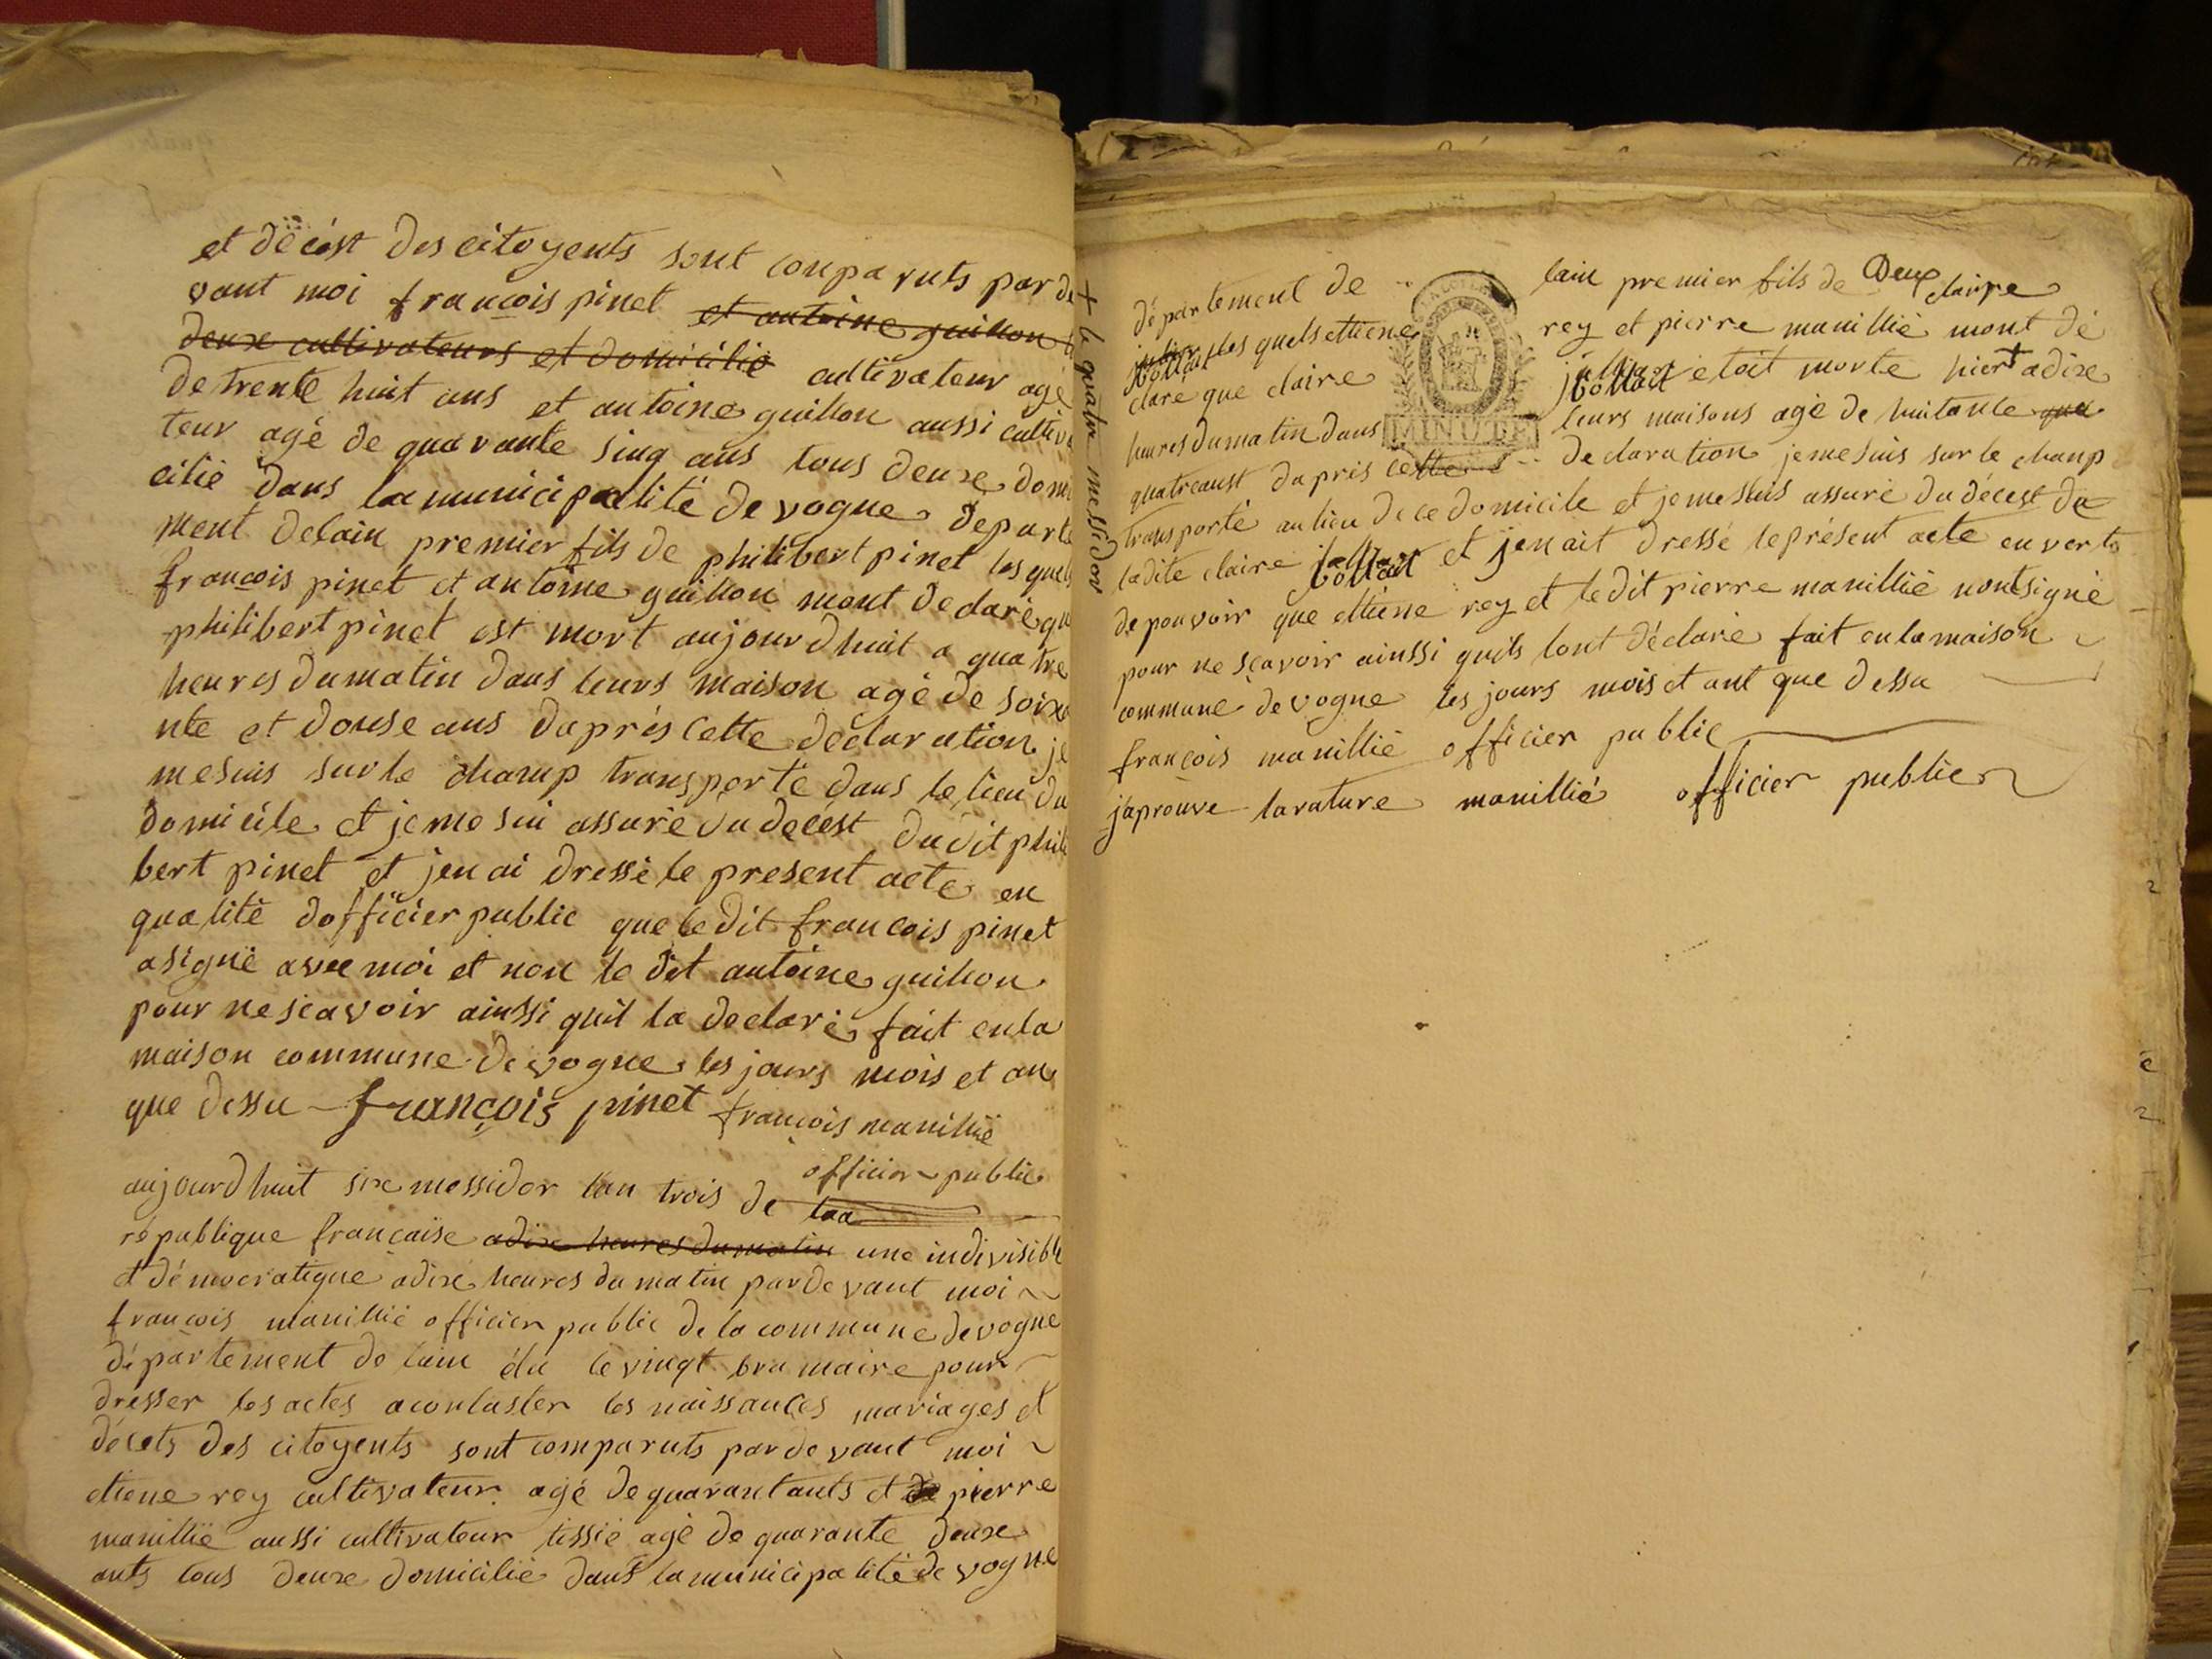 et dëcést des citoyents sont conparuts par de
vant moi francois pinet et antoine guillon
deuxe cultivateurs et domicilié cultivateur agé
de trente huit ans et antoine guillon aussi cultiva
teur agé de quarante sinq ans tous deuxe domi
cilié dans la municipalité de vogne departe
ment delain premier fils de philibert pinet les quels
francois pinet et antoine guillon mont declaré que
philibert pinet est mort aujourdhuit a quatre
heures dumatin dans leurs maison agé de soixa
nte et douse ans daprés cette déclaration je
mesuis surle champ transporté dans le lieu du
domicile et jeme sui assuré du decést dudit phili
bert pinet et jenai dressé le present acte en
qualité dofficier public que ledit francois pinet
a signé avec moi et non le dit antoine guillon
pour nescavoir ainssi quil la declaré fait enla
maison commune de vogne les jours mois et an
que dessu françois pinet francois manillié
officier public
aujourdhuit sixe messidor lan trois de laa
république francaise adixe heures dumatin une indivisible
et démocratique adixe heures du matin pardevant moi
francois manillié officier public de la commune devogne
département de lain élu le vingt brumaire pour
dresser les actes aconlaster les naissances mariages et
décets des citoyents sont comparuts pardevant moi
etiene rey cultivateur agé de quarantants et de pierre
manillié aussi cultivateur tissié agé de quarante deuxe
ants tous deuxe domicilié dans la municipalité de vogne
+ le quatre messidor
département de lain premier fils de Deux claire
bollait les quels ettiene rey et pierre manillié mont dé
claré que claire bollait etoit morte hier + adixe
heures dumatin dans leurs maisons agé de huitante que
quatreanst dapris cette declaration jemesuis sur le champ
transporté au lieu de ce domicile et jemesuis assuré du décest de
ladite claire bollait et jenait dressé leprésent acte en verts
de pouvoir que ettiene rey et ledit pierre manillié nontsigné
pour ne scavoir ainssi quils lont déclaré fait enlamaison
commune de vogne les jours mois et ant que dessu
françois manillié officier public
japrouve larature manillié officier public
MINUTE